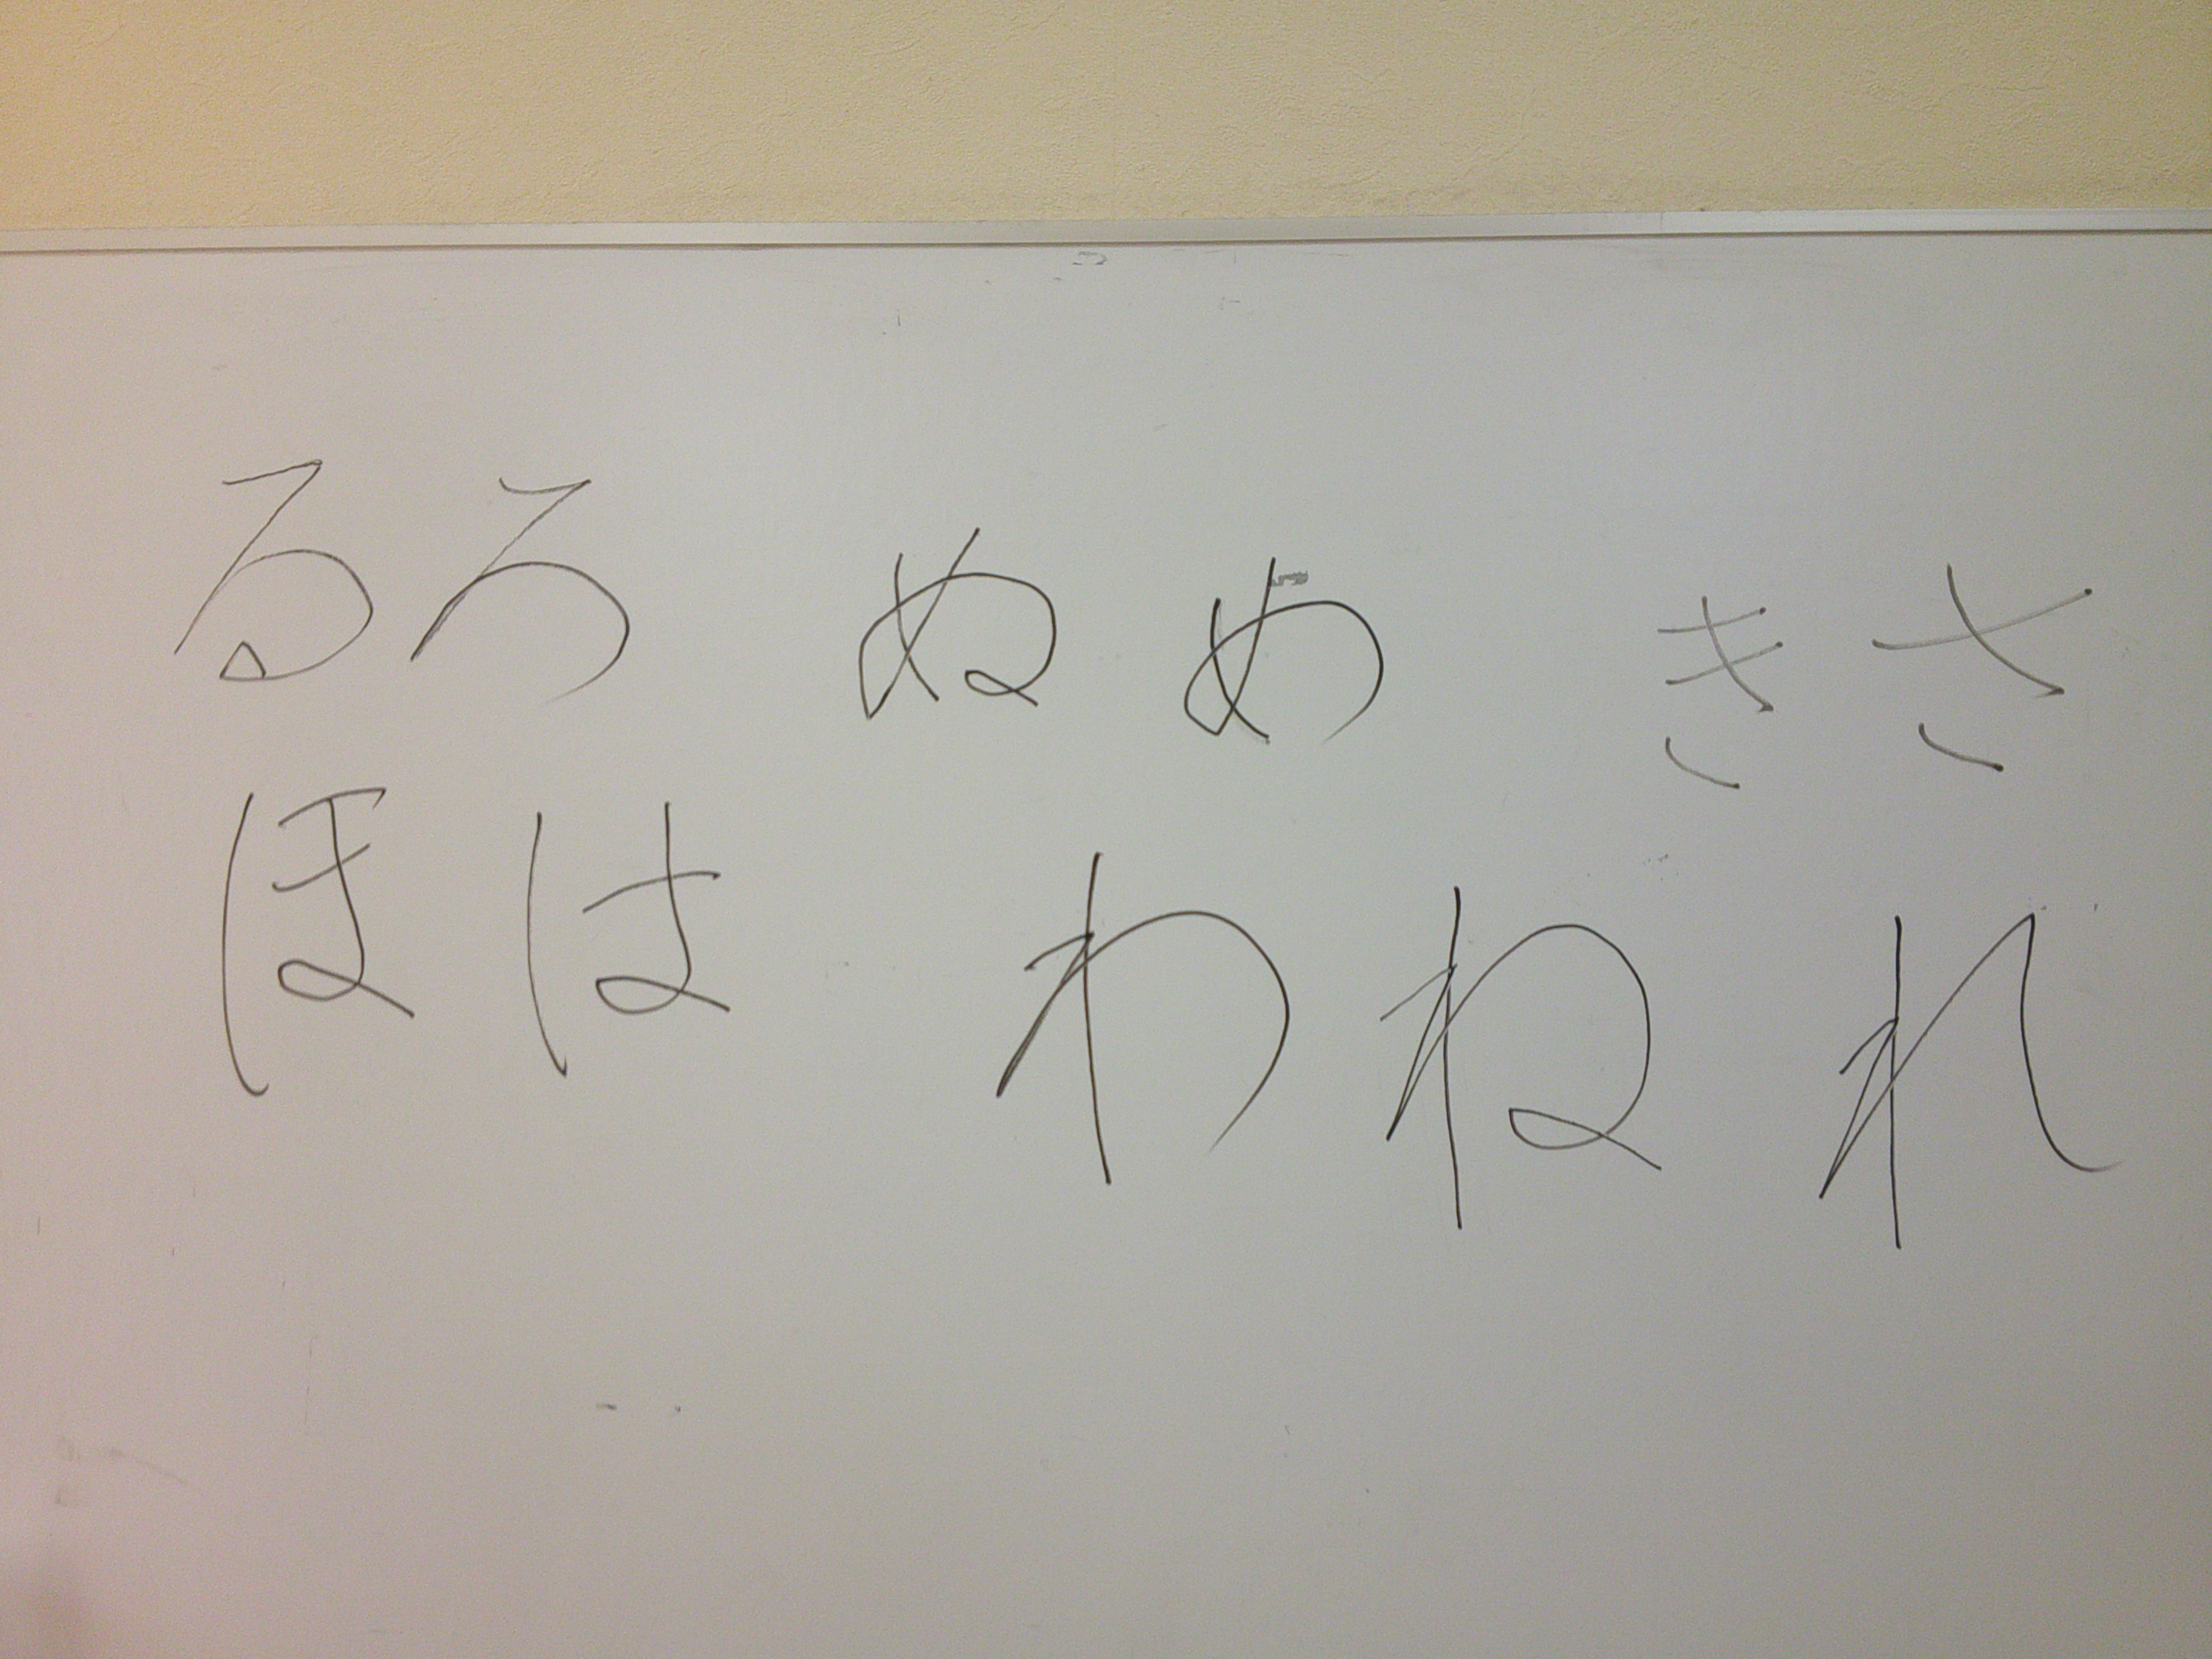 るろ ぬ め き さ
ほ は わ ね れ